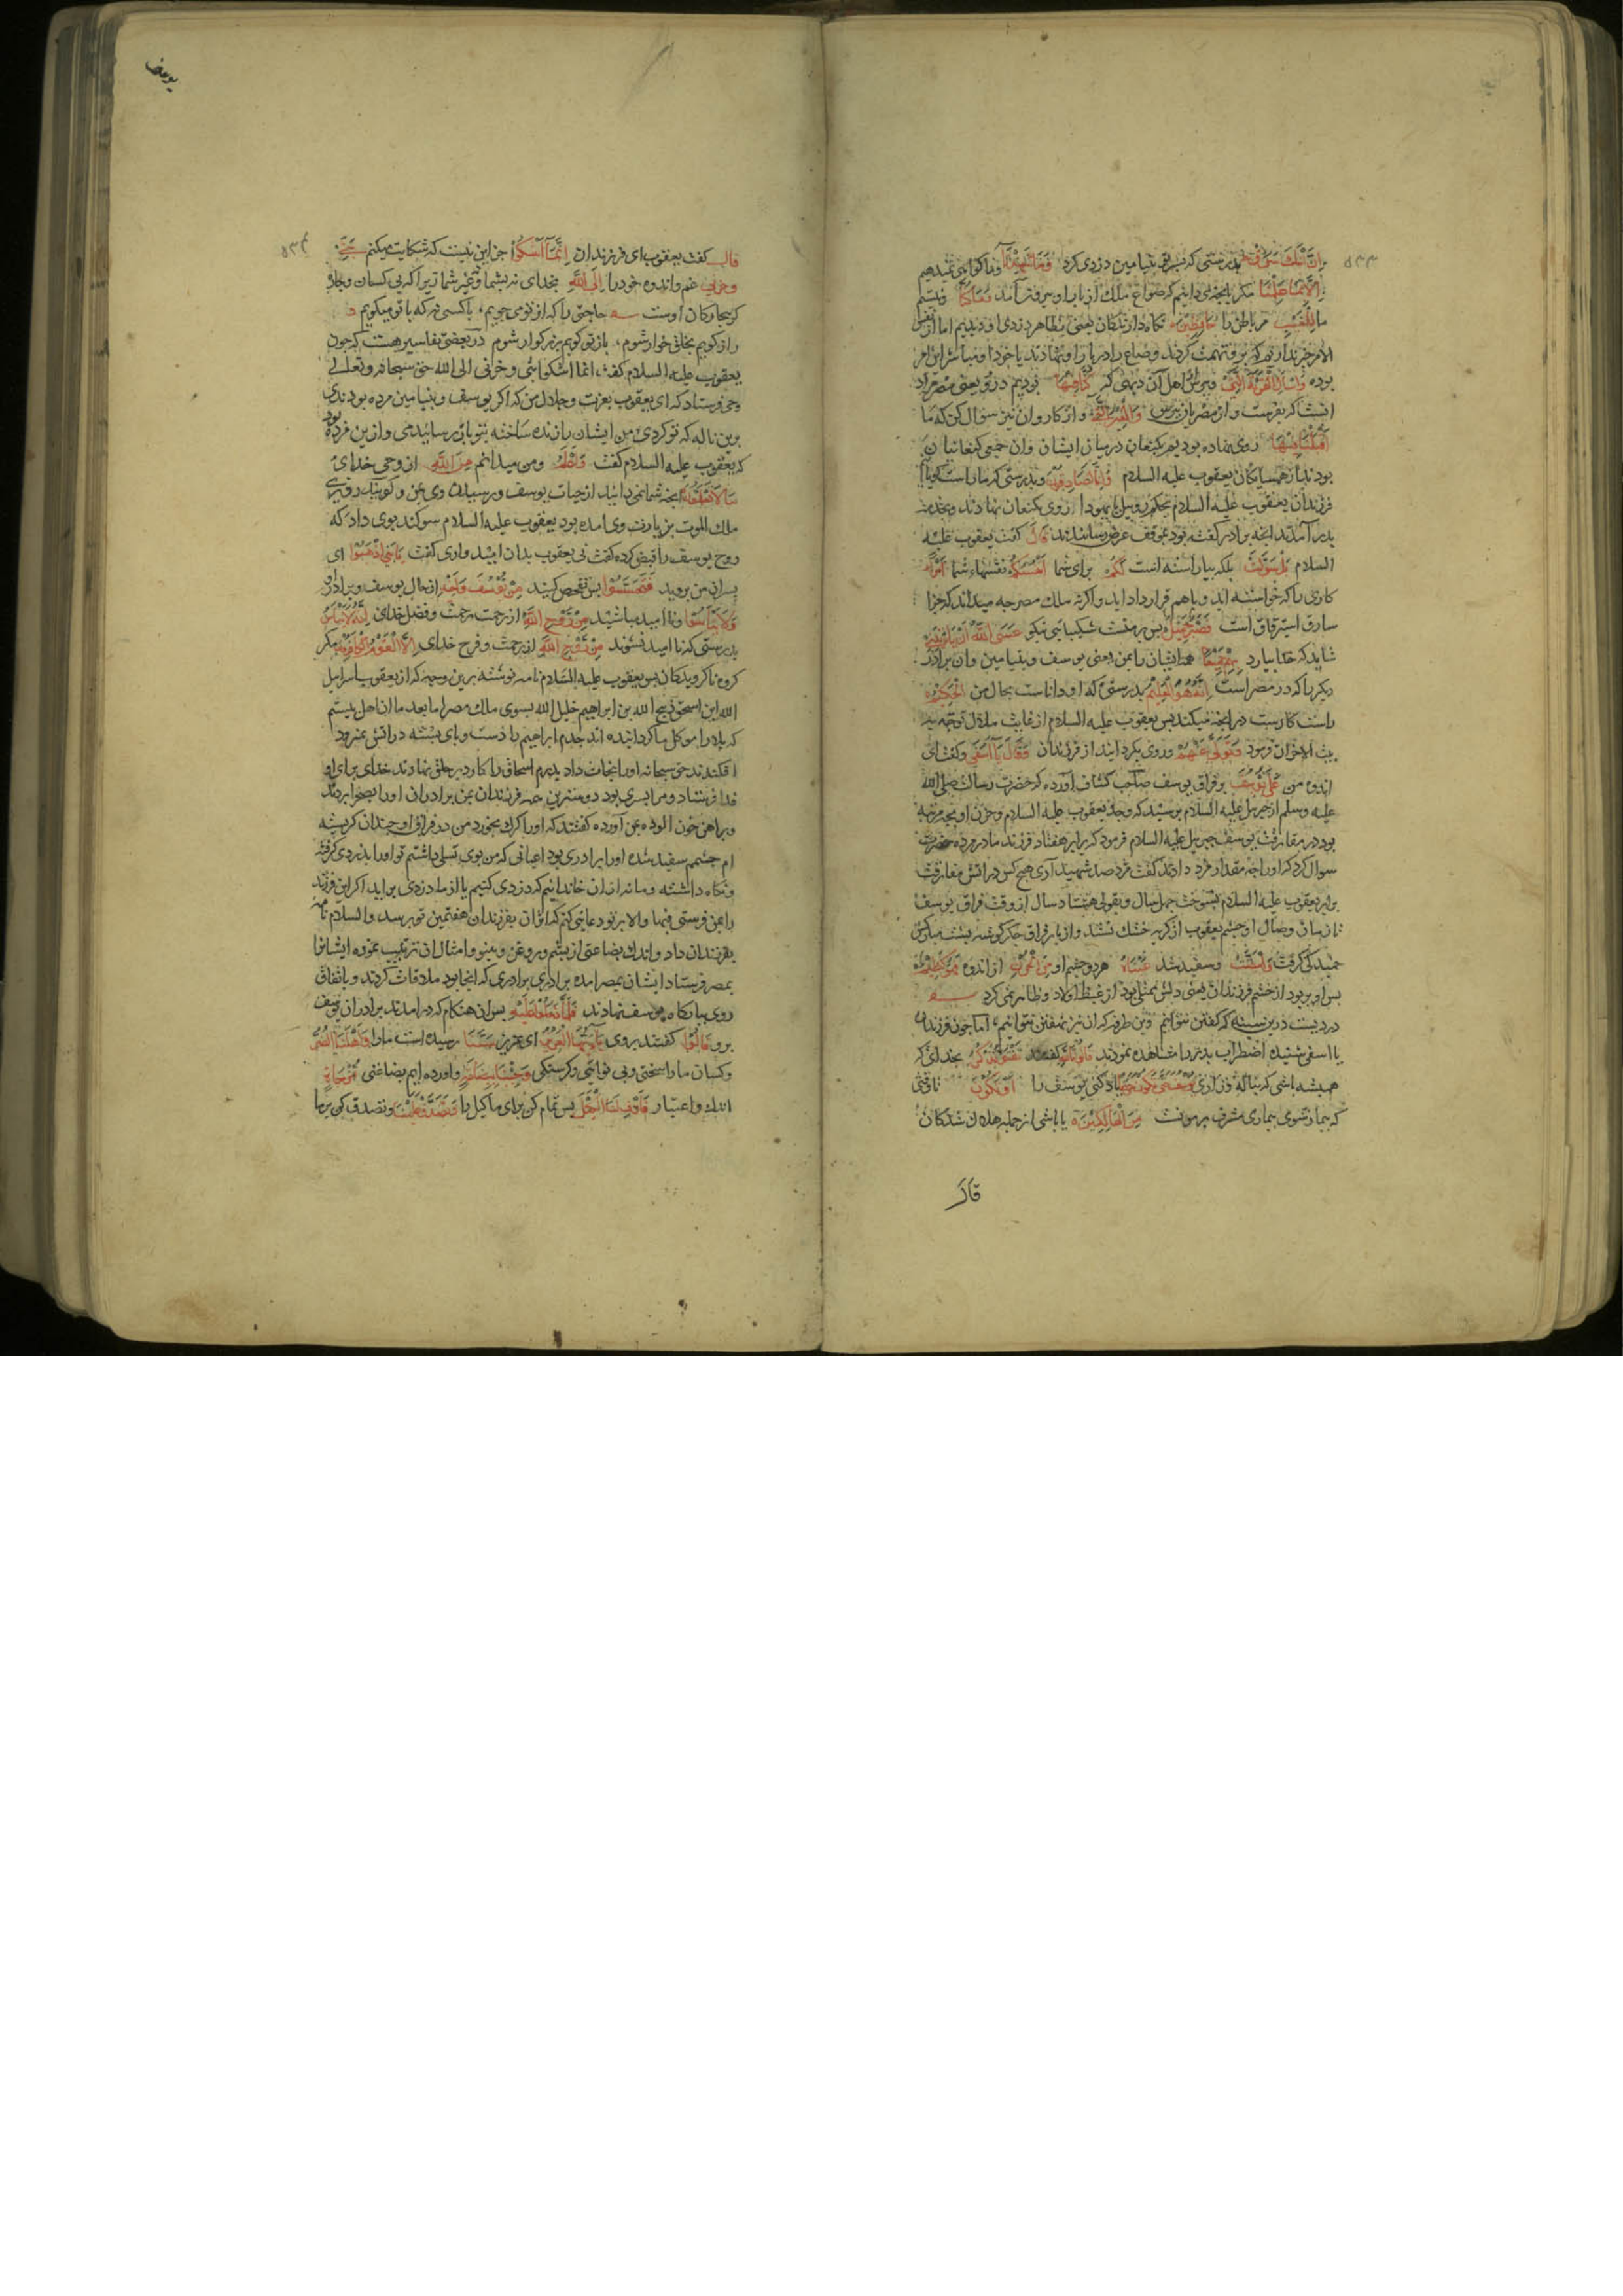 ۵۳۳
اِنَّ ابْنَكَ سَرَقَ بدرستی كه پسر تو بنیامین دزدی كرد وَمَا شَهِدْنَا وما گواهی نمیدهیم
اِلَّا بِمَا عَلِمْنَا مكر بانچه می دانیم كه صواع ملك از بار او بیرون آمد وَمَا كُنَّا ونیستیم
ما لِلْغَيْبِ مر باطن را حَافِظِيْنَ نكاه دارندكان یعنی بظاهر دزدی او دیدیم اما از نفس
الامر خبر نداریم كه برو تهمت كردند وصاع را در بار او نهادند یا خود او مباشر این امر
بوده وَاسْأَلِ الْقَرْيَةَ الَّتِيْ وبپرس از اهل آن دیهی كه كُنَّا فِيْهَا بودیم در و یعنی مصر
بفرست و از مصریان بپرس وَالْعِيْرَ الَّتِيْ و از كاروان نیز سوال كن كه ما
اَقْبَلْنَا فِيْهَا روی نهاده بودیم بكنعان درمیان ایشان وان جمعی كنعانیان
بودند از همسایكان یعقوب علیه السلام وَاِنَّا لَصَادِقُوْنَ وبدرستی كه ما راست كویانیم
فرزندان یعقوب علیه السلام بحكم روبیل یا یهودا روی بكنعان نهادند وبخدمت
پدر آمدند انچه برادر كفته بود بموقف عرض رسانیدند قَالَ كفت یعقوب علیه
السلام بَلْ سَوَّلَتْ بلكه بیاراسته است لَكُمْ برای شما اَنْفُسُكُمْ نفسهاء شما اَمْرًا
كاری را كه خواسته اید وباهم قرار داده اید واكرنه ملك مصر چه میداند كه جزا
سارق استرقاق است فَصَبْرٌ جَمِيْلٌ پس بر منست شكیبائی نیكو عَسَى اللّٰهُ اَنْ يَأْتِيَنِيْ
شاید كه خدا بیارد بِهِمْ جَمِيْعًا همه ایشان را بمن یعنی یوسف وبنیامین وان برادر
دیكر را كه در مصر است اِنَّهُ هُوَ الْعَلِيْمُ بدرستی كه او داناست بحال من الْحَكِيْمُ
راست كارست در انچه میكند پس یعقوب علیه السلام از غایت ملال توجه به
بیت الاحزان فرمود وَتَوَلَّى عَنْهُمْ وروی بكردانید از فرزندان وَقَالَ يَا اَسَفَى وكفت ای
اندوه من عَلَى يُوْسُفَ بر فراق یوسف صاحب كشاف آورده كه حضرت رسالت صلی الله
علیه وسلم از جبریل علیه السلام پرسید كه وجد یعقوب علیه السلام وحزن او بچه مرتبه
بود در مفارقت یوسف جبریل علیه السلام فرمود كه برابر هفتاد فرزند مادر مرده حضرت
سوال كرد كه او را چه مقدار مزد دادند كفت مزد صد شهید آری هیچ كس در اتش مفارقت
برابر یعقوب علیه السلام نسوخت چهل سال وبقولی هشتاد سال از وقت فراق یوسف
تا زمان وصال او چشم یعقوب از كریه خشك نشد و از بار فراق جكر كوشه پشت مباركش
خمیدكی كرفت وَابْيَضَّتْ وسفید شد عَيْنَاهُ هر دو چشم او مِنَ الْحُزْنِ از اندوه فَهُوَ كَظِيْمٌ
پس او پر بود از خشم فرزندان یعنی دلش ممتلی بود از غیظ اولاد وظاهر نمی كرد
دردیست درین سینه كه كفتن نتوانم وین طرفه كه ان نیز نهفتن نتوانم اما چون فرزندان
یا اسفی شنیده اضطراب پدر را مشاهده نمودند قَالُوْا تَاللّٰهِ كفتند تَفْتَؤُا تَذْكُرُ بخدای كه
همیشه باشی كه بناله وزاری یاد كنی یوسف را حَتّٰى تَكُوْنَ حَرَضًا اَوْ تَكُوْنَ تا وقتی
كه بیمار شوی بیماری مشرف بر موت مِنَ الْهَالِكِيْنَ یا باشی از جمله هلاك شدكان
قَالَ
یوسف
۵۳۴
قال كفت یعقوب ای فرزندان اِنَّمَا اَشْكُوْا جز این نیست كه شكایت میكنم بَثِّيْ
وحزنی غم واندوه خود را اِلَى اللّٰهِ بخدای نه بشما وغیر شما زیرا كه بی كسان وچاره
كر بیچاركان اوست حاجتی را كه از تو می جویم باكسی نه كه با تو میكویم
راز كویم بخلق خوار شوم باتو كویم بزركوار شوم در بعضی تفاسیر هست كه چون
یعقوب علیه السلام كفت انما اشكوا بثی وحزنی الی الله حق سبحانه وتعالی
وحی فرستاد كه ای یعقوب بعزت وجلال من كه اكر یوسف وبنیامین مرده بودندی
برین ناله كه تو كردی من ایشان را زنده ساخته بتو باز رسانیدمی و ازین مژده بود
كه یعقوب علیه السلام كفت وَاَعْلَمُ ومن میدانم مِنَ اللّٰهِ از وحی خدای
مَا لَا تَعْلَمُوْنَ انچه شما نمی دانید از حیات یوسف ورسیدن وی بمن وكویند روزی
ملك الموت بزیارت وی امده بود یعقوب علیه السلام سوكند بوی داد كه
روح یوسف را قبض كرده كفت نی یعقوب بدان امیدواری كفت يَا بَنِيَّ اذْهَبُوْا ای
پسران من بروید فَتَحَسَّسُوْا پس تفحص كنید مِنْ يُوْسُفَ وَاَخِيْهِ از حال یوسف وبرادر او
وَلَا تَيْأَسُوْا ونا امید مباشید مِنْ رَوْحِ اللّٰهِ از رحمت وفضل خدای اِنَّهُ لَا يَيْأَسُ
بدرستی كه نا امید نشوند مِنْ رَوْحِ اللّٰهِ از رحمت وفرح خدای اِلَّا الْقَوْمُ الْكَافِرُوْنَ مكر
كروه ناكرویدكان پس یعقوب علیه السلام نامه نوشته برین وجه كه از یعقوب اسرایل
الله ابن اسحق ذبیح الله بن ابراهیم خلیل الله بسوی ملك مصر اما بعد ما ان اهل بیتیم
كه بلا را موكل ما كردانیده اند جدم ابراهیم را دست وپای بسته در اتش نمرود
افكندند حق سبحانه او را نجات داد پدرم اسحاق را كارد بر حلق نهادند خدای برای او
فدا فرستاد ومرا پسری بود دوستترین همه فرزندان بمن برادران او را بصحرا بردند
وپراهن خون الوده بمن آورده كفتند كه او را كرك بخورد من در فراق او چندان كریسته
ام چشمم سفید شده او را برادری بود اعیانی كه من بوی تسلی داشتم تو او را بدزدی كرفته
ونكاه داشته وما نه از ان خاندانیم كه دزدی كنیم یا از ما دزدی براید اكر این فرزند
را بمن فرستی فبها والا بر تو دعایی كنم كه اثر ان بفرزندان هفتمین تو رسد والسلام نامه
بفرزندان داد واندك بضاعتی از پشم وروغن وپینو وامثال ان ترتیب نموده ایشانرا
بمصر فرستاد ایشان بمصر امده برادری برادری كه انجا بود ملاقات كردند وباتفاق
روی ببارگاه یوسف نهادند فَلَمَّا دَخَلُوْا عَلَيْهِ پس ان هنكام كه در امدند برادران یوسف
برو قَالُوْا كفتند بروی يَا اَيُّهَا الْعَزِيْزُ ای عزیز مَسَّنَا رسیده است ما را وَاَهْلَنَا الضُّرُّ
وكسان ما را سختی وبی نوائی وكرسنكی وَجِئْنَا بِبِضَاعَةٍ واورده ایم بضاعتی مُزْجَاةٍ
اندك وبی اعتبار فَاَوْفِ لَنَا الْكَيْلَ پس تمام كن برای ما كیل را وَتَصَدَّقْ عَلَيْنَا وتصدق كن بر ما